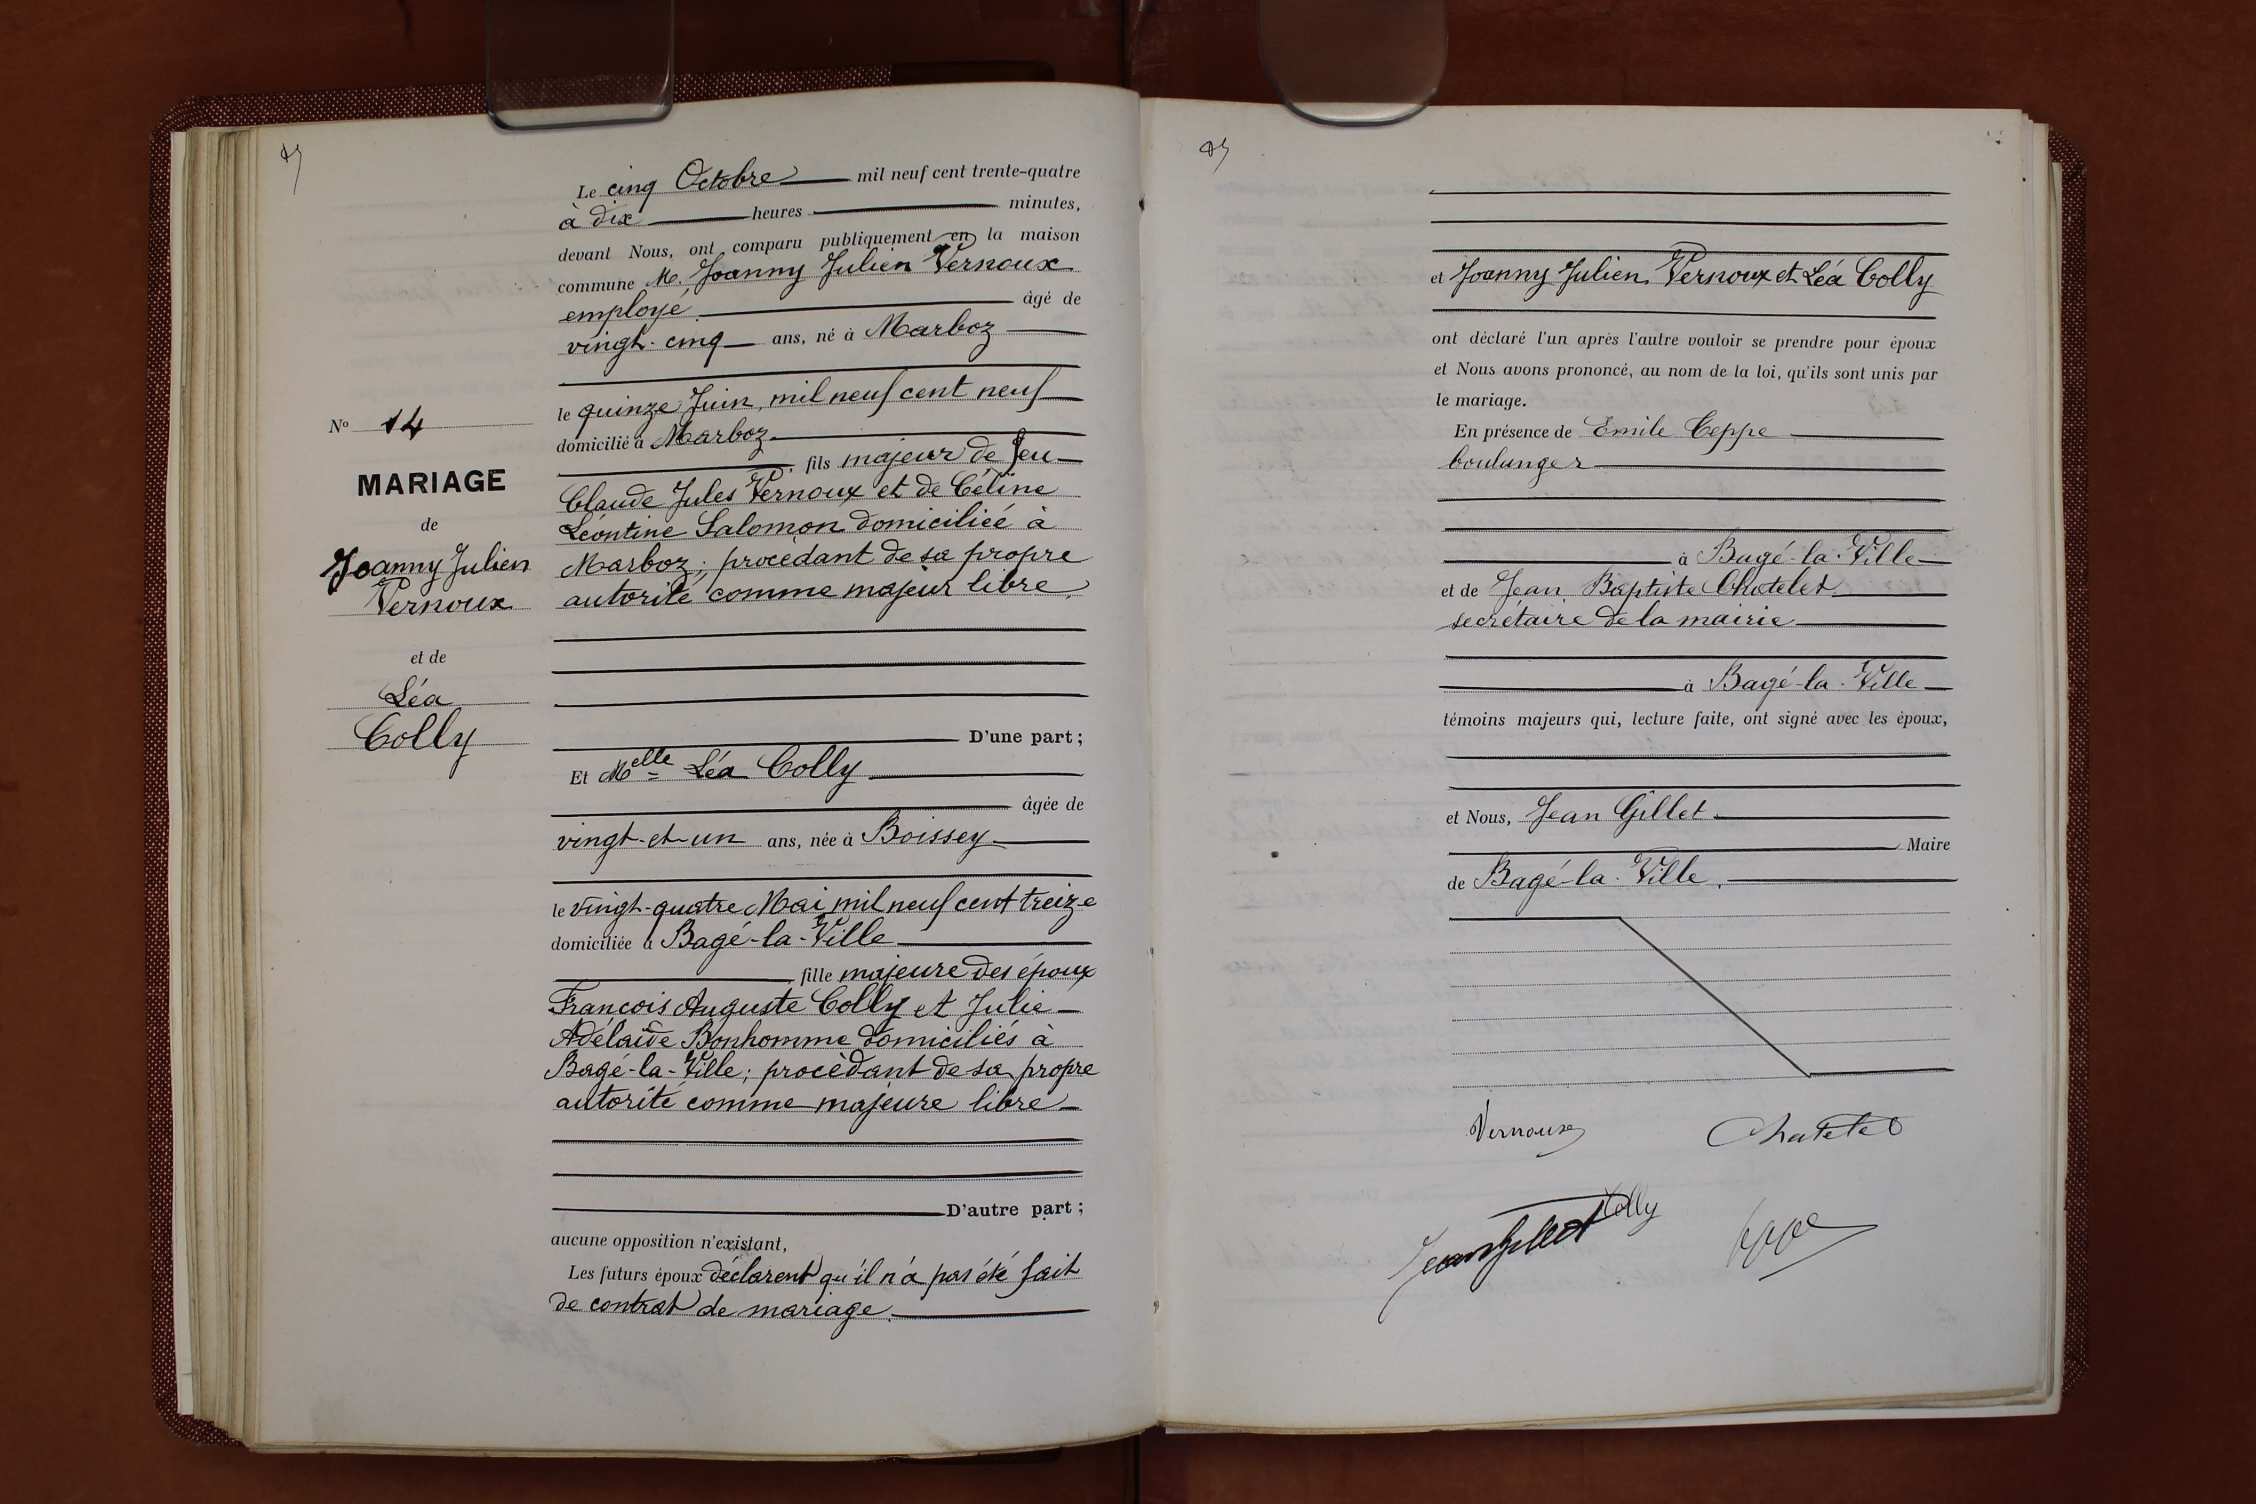 Le cinq Octobre mil neuf cent trente-quatre
à dix heures minutes,
devant Nous, ont comparu publiquement en la maison
commune M. Joanny Julien Vernoux
employé, âgé de
vingt-cinq ans, né à Marboz
le quinze Juin, mil neuf cent neuf
domicilié à Marboz
fils majeur de feu
Claude Jules Vernoux et de Céline
Léontine Salomon domiciliée à
Marboz; procédant de sa propre
autorité comme majeur libre.
D'une part;
Et Melle Léa Colly
âgée de
vingt-et-un ans, née à Boissey
le vingt-quatre Mai mil neuf cent treize
domiciliée à Bagé-la-Ville
fille majeure des époux
François Auguste Colly et Julie
Adélaïde Bonhomme domiciliés à
Bagé-la-Ville; procédant de sa propre
autorité comme majeure libre
D'autre part;
aucune opposition n'existant,
Les futurs époux déclarent qu'il n'a pas été fait
de contrat de mariage.
No 14
MARIAGE
de
Joanny Julien
Vernoux
et de
Léa
Colly
et Joanny Julien Vernoux et Léa Colly
ont déclaré l'un après l'autre vouloir se prendre pour époux
et Nous avons prononcé, au nom de la loi, qu'ils sont unis par
le mariage.
En présence de Emile Ceppe
boulanger
à Bagé-la-Ville
et de Jean Baptiste Chatelet
secrétaire de la mairie
à Bagé-la-Ville
témoins majeurs qui, lecture faite, ont signé avec les époux,
et Nous, Jean Gillet
Maire
de Bagé-la-Ville.
Vernoux Chatelet
Colly
Jean Gillet